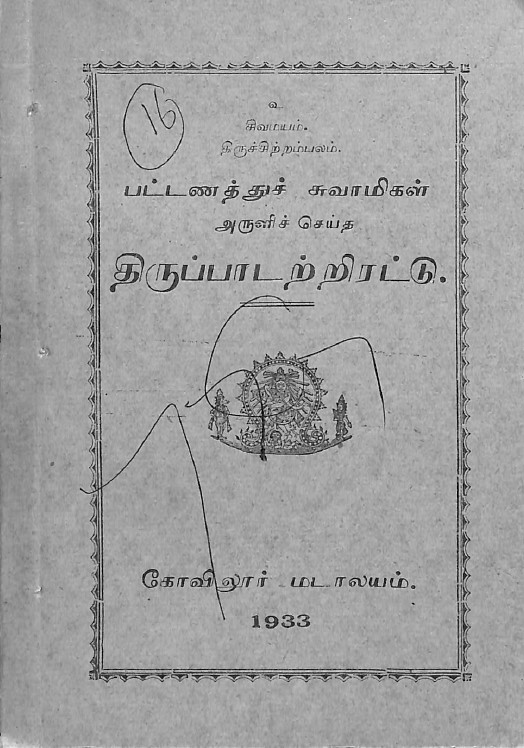 16
உ
சிவமயம்.
திருச்சிற்றம்பலம்.
பட்டணத்துச் சுவாமிகள்
அருளிச் செய்த
திருப்பாடற்றிரட்டு.
கோவிலூர் மடாலயம்.
1933